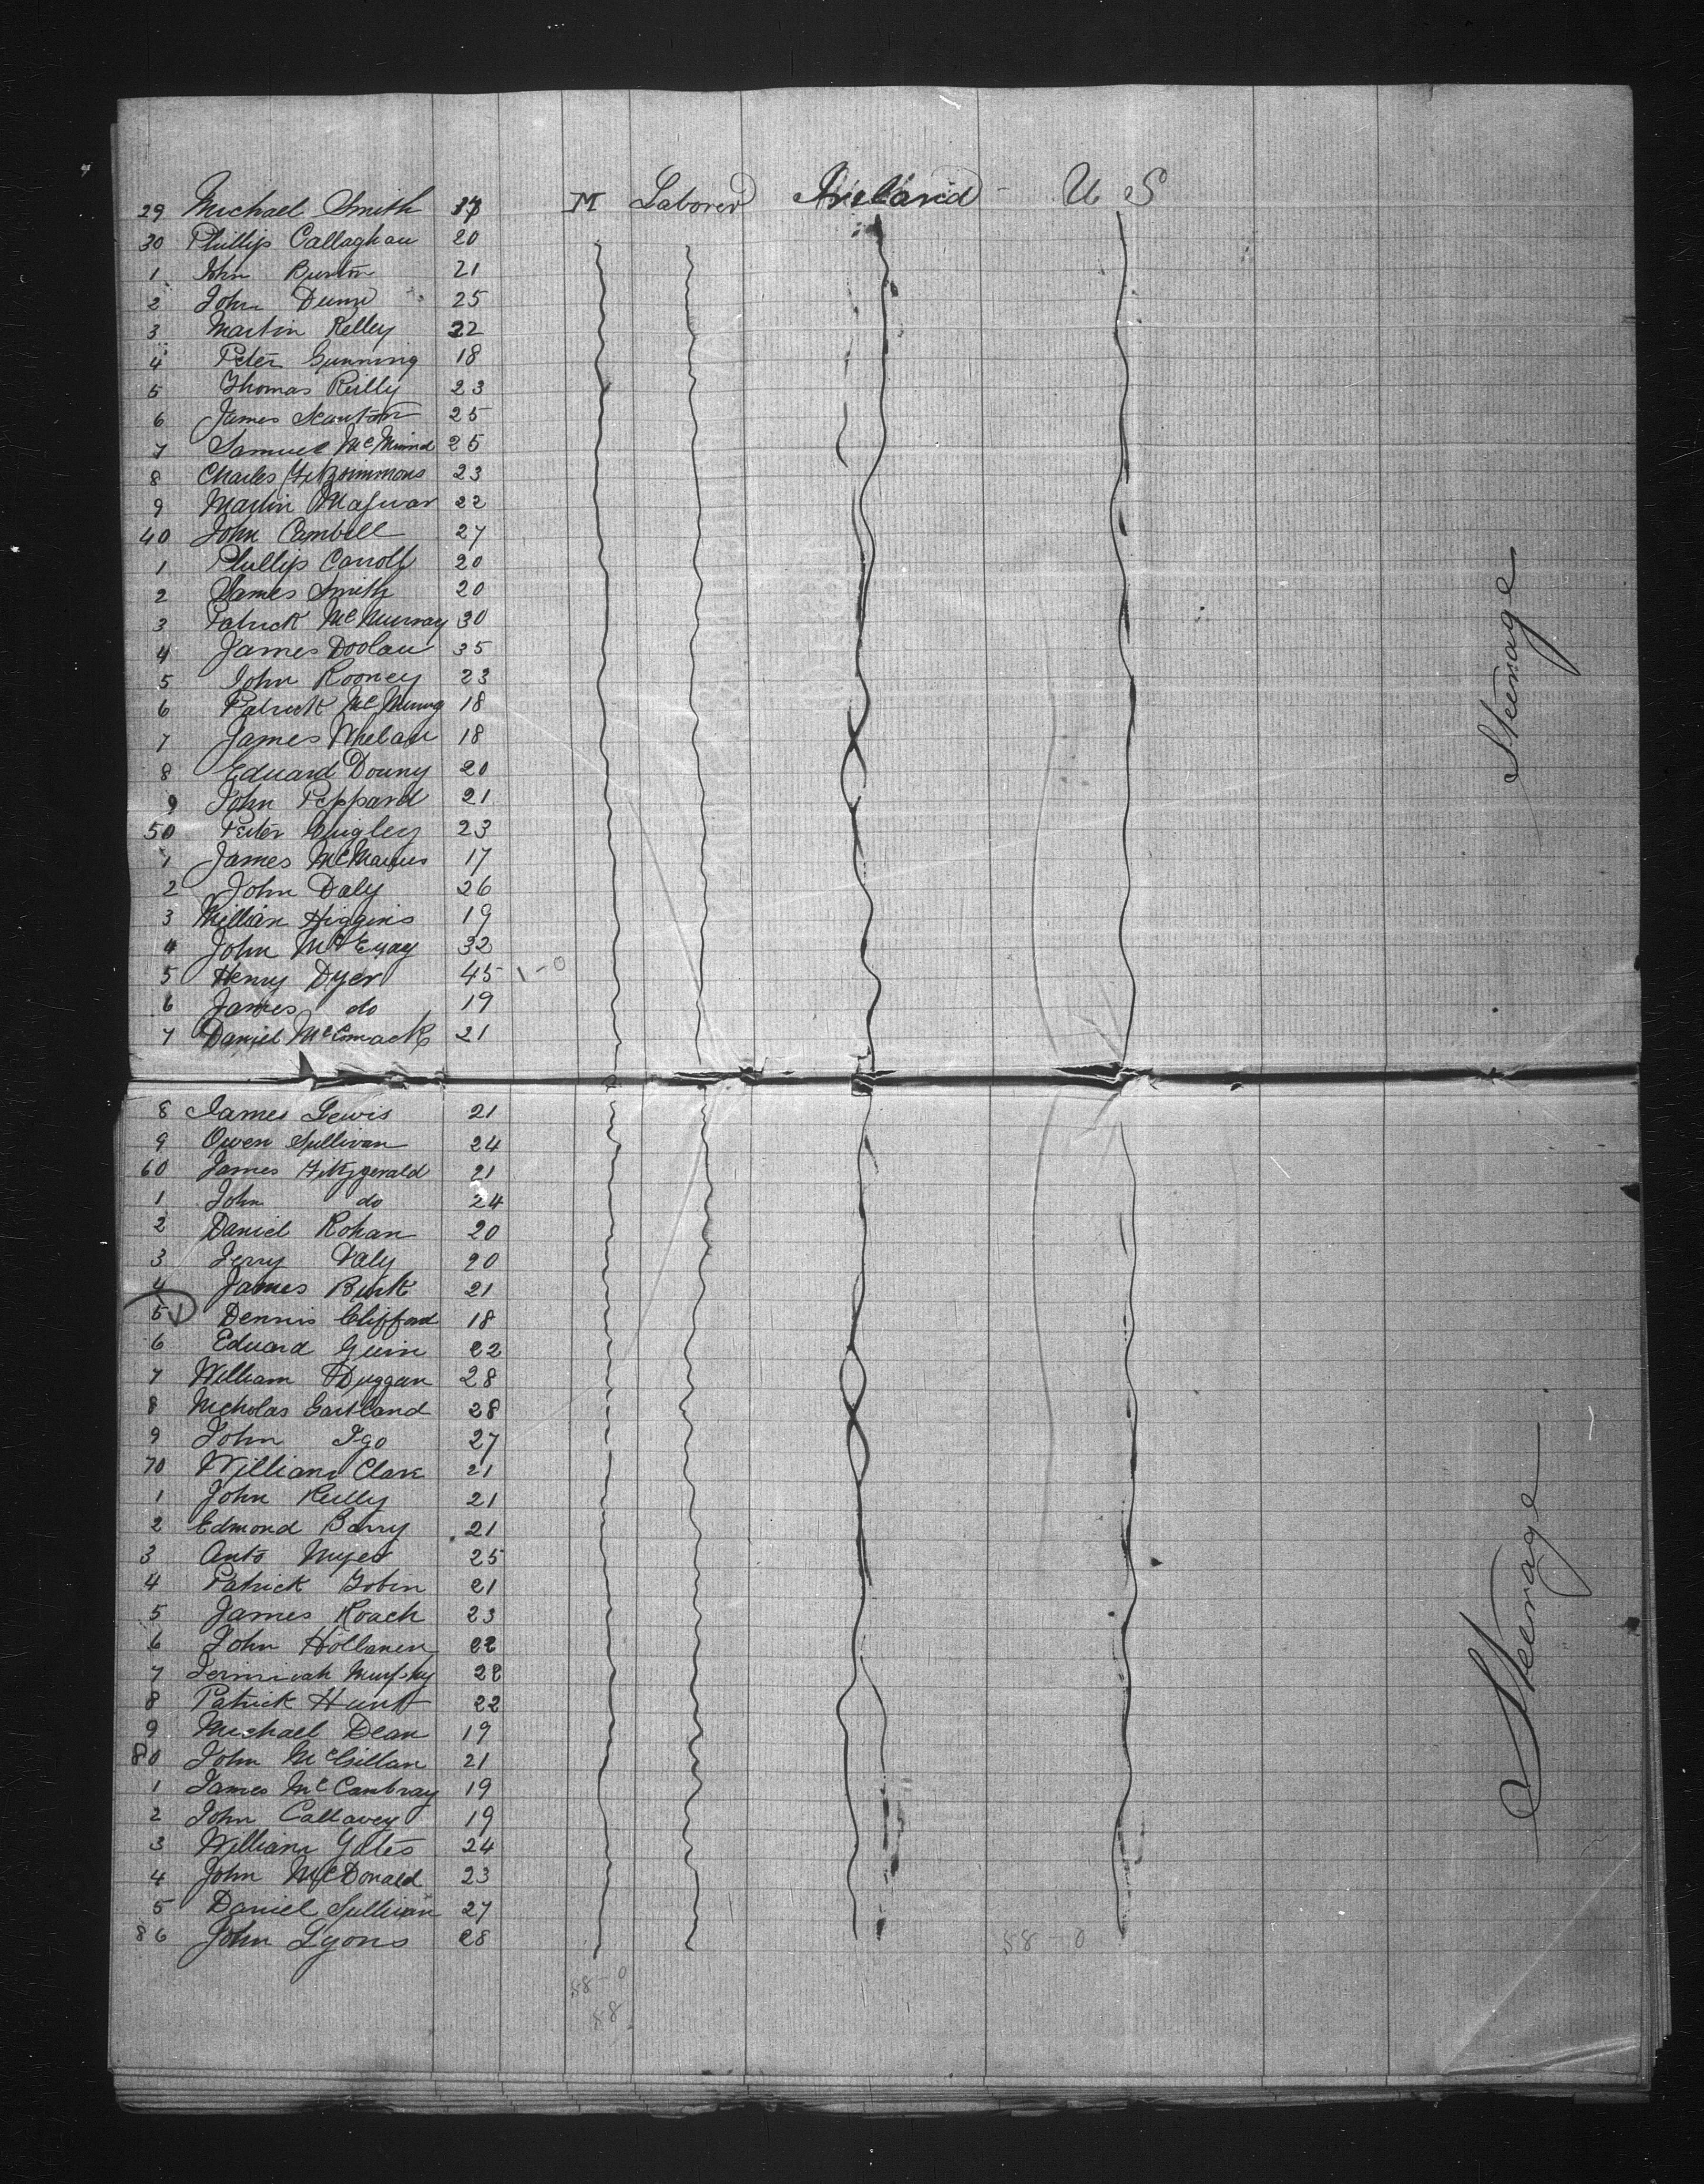 29 Michael Smith M Laborer Ireland U S
30 Phillip Callaghan 20
1 John Burton 21
2 John Dunn 25
3 Martin Kelley 22
4 Peter Gunning 18
5 Thomas Reilly 23
6 James 25
7 Samuel 25
8 Charles Fitzsimmons 23
9 Martin 22
40 John Cambell 27
1 Phillip Carroll 20
2 James Smith 20
3 Patrick McMurray 30
4 James Doolan 35
5 John Rooney 23
6 Patrick 18
7 James Whelan 18
8 Eduard Douny 20
9 John Peppard 21
50 Peter Quigley 23
1 James McManus 17
2 John Daly 26
3 William Higgins 19
4 John McEvay 32
5 Henry Dyer 45 1-0
6 James do 19
7 Daniel 21
8 James Lewis 21
9 Owen Sullivan 24
60 James Fitzgerald 21
1 John do 24
2 Daniel Rohan 20
3 Jerry Daly 20
4 James Burk 21
5 Dennis Clifford 18
6 Eduard 22
7 William Duggan 28
8 Nicholas Gartland 28
9 John Igo 27
70 William Clark 21
1 John Reilly 21
2 Edmond Barry 21
3 Anto 25
4 Patrick Tobin 21
5 James Roach 23
6 John 22
7 Murphy 22
8 Patrick Hunt 22
9 Michael Dean 19
80 John McGillan 21
1 James McCambray 19
2 John Callavey 19
3 William Yates 24
4 John McDonald 23
5 Daniel Sullivan 27
86 John Lyons 28
58-0
58-0
58
Steerage
Steerage